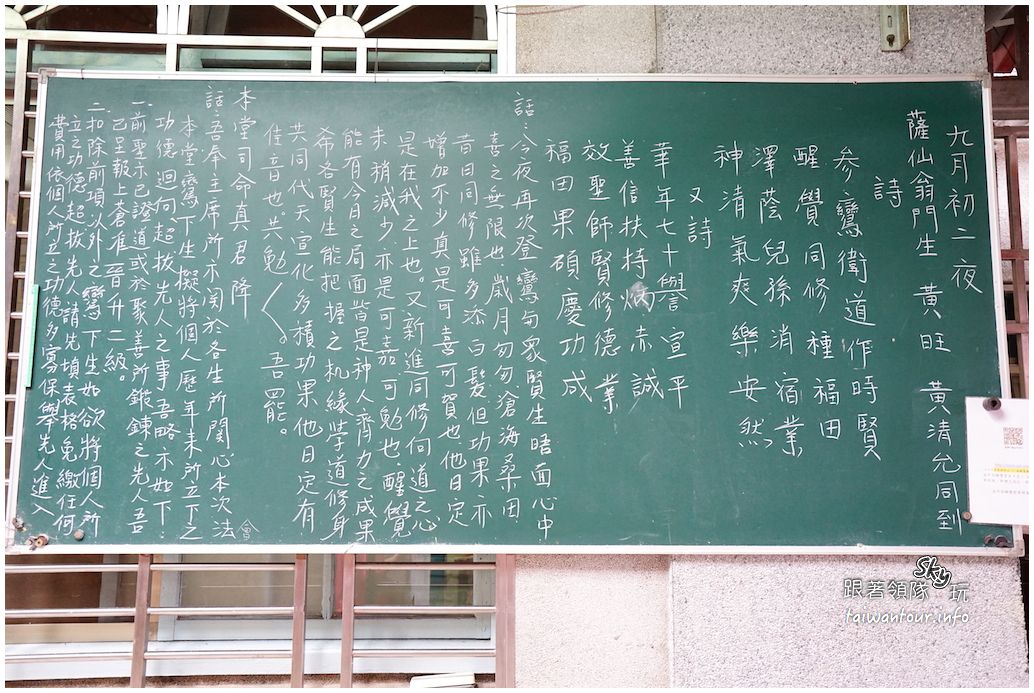 九月初二夜
薩仙翁門生 黃旺 黃清允同到
詩
參鸞衛道作時賢
醒覺同修種福田
澤蔭兒孫消宿業
神清氣爽樂安然
又詩
華年七十譽宣平
善信扶持炳赤誠
效聖師賢修德業
福田果碩慶功成
話：今夜再次登鸞與眾賢生晤面心中
喜之無限也。歲月匆匆、滄海桑田
昔日同修雖多添白髮但功果亦
增加不少真是可喜可賀也、他日定
是在我之上也。又新進同修向道之心
未稍減少、亦是可嘉可勉也、醒覺
能有今日之局面皆是神人齊力之成果
希各賢生能把握之机緣學道修身
共同代天宣化多積功果、他日定有
佳音也。共勉 吾罷。
本堂司命真君 降
話：吾奉主席所示関於各生所関心本次法會
本堂鸞下生擬將個人歷年來所立下之
功德迴向、超拔先人之事吾略示如下：
一、前聖示已證道或於聚善所鍛鍊之先人吾
已呈報上蒼准晉升二級。
二、扣除前項以外之鸞下生如欲將個人所
立之功德超拔先人請先填表格免繳任何
費用依個人所立之功德多寡保舉先人進入
跟著領隊Sky玩
taiwantour.info